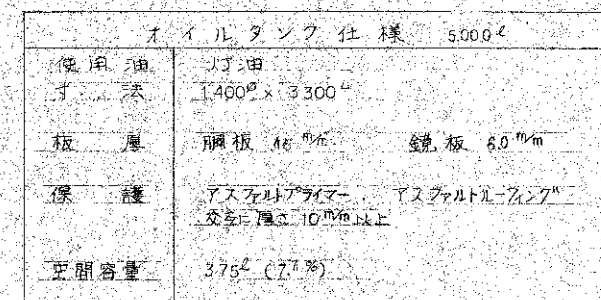 オイルタンク仕様 5000ℓ
使用油 灯油
寸法 1400φ × 3300L
板厚 胴板 m/m 鏡板 6.0 m/m
保護 アスファルトプライマー アスファルトルーフィング
交互に厚さ 10m/m以上
空間容量 375ℓ (7.7%)